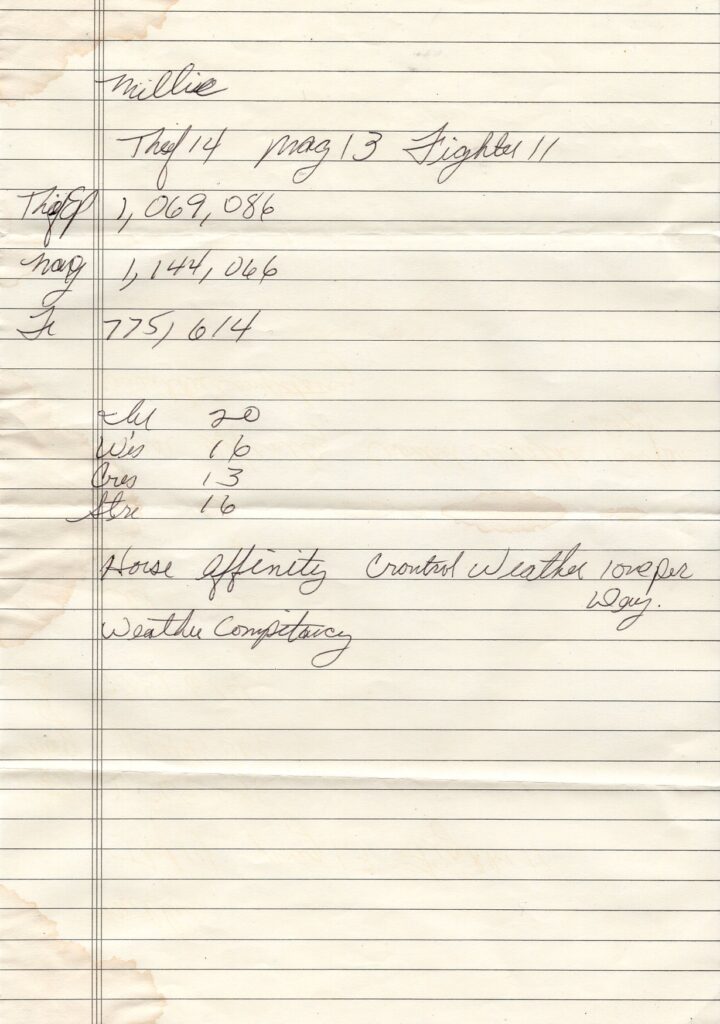 Millie
Thief 14 Mag 13 Fighter 11
Thief 1,069,086
Mag 1,144,066
Fi 775,614
Int 20
Wis 16
Cres 13
Stre 16
Horse affinity Crontrol Weather 1 one per
Day.
Weather Compitancy